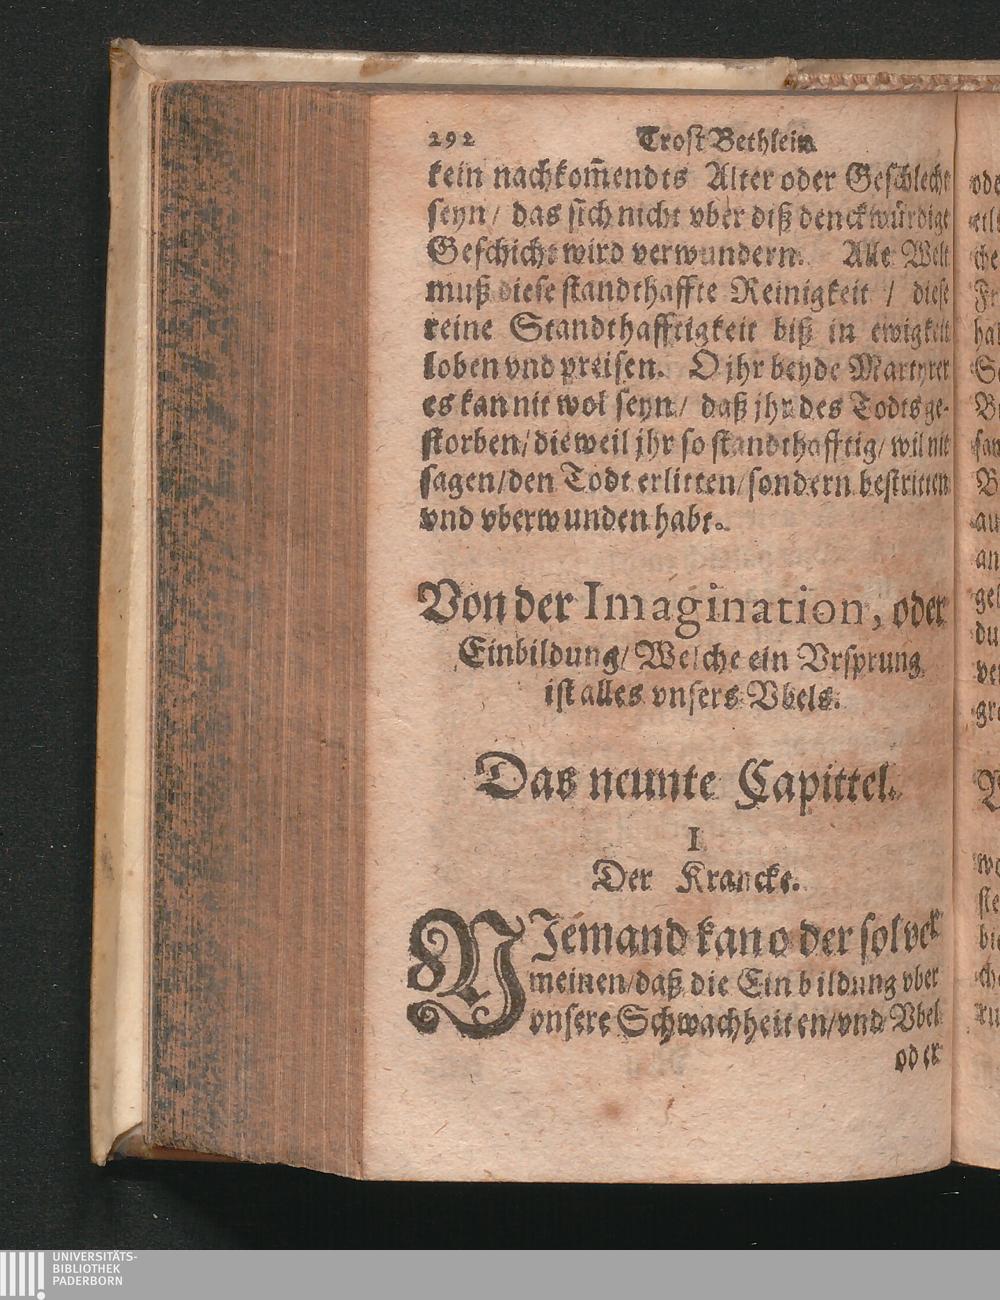 292 Trost Bethlein
kein nachkom̃endts Alter oder Geschlecht
seyn / das sich nicht vber diß denckwürdige
Geschicht wird verwundern. Alle Welt
muß diese standthaffte Reinigkeit / diese
reine Standthafftigkeit biß in ewigkeit
loben vnd preisen. O jhr beyde Martyrer
es kan nit wol seyn / daß jhr des Todts ge-
storben / dieweil jhr so standthafftig / wil nit
sagen / den Todt erlitten / sondern bestritten
vnd vberwunden habt.
Von der Imagination, oder
Einbildung / Welche ein Vrsprung
ist alles vnsers Vbels.
Das neunte Capittel.
I
Der Krancke.
NJemand kan oder sol ver
meinen / daß die Einbildung vber
vnsere Schwachheiten / vnd Vbel
oder
UNIVERSITÄTS-
BIBLIOTHEK
PADERBORN